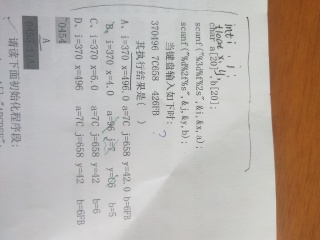 int i, j;
float x, y;
char a[20], b[20];
scanf("%3d%f%2s",&i,&x,a);
scanf("%d%2f%s",&j,&y,b);
当键盘输入如下时：
370496 7C658 426FB
其执行结果是( )
?
A、i=370 x=496.0 a=7C j=658 y=42.0 b=6FB
C、i=370 x=6.0 a=7C j=658 y=42 b=6
D、i=370 x=496 a=7C j=658 y=42 b=6FB
A
0454
请读下面初始化程序段：